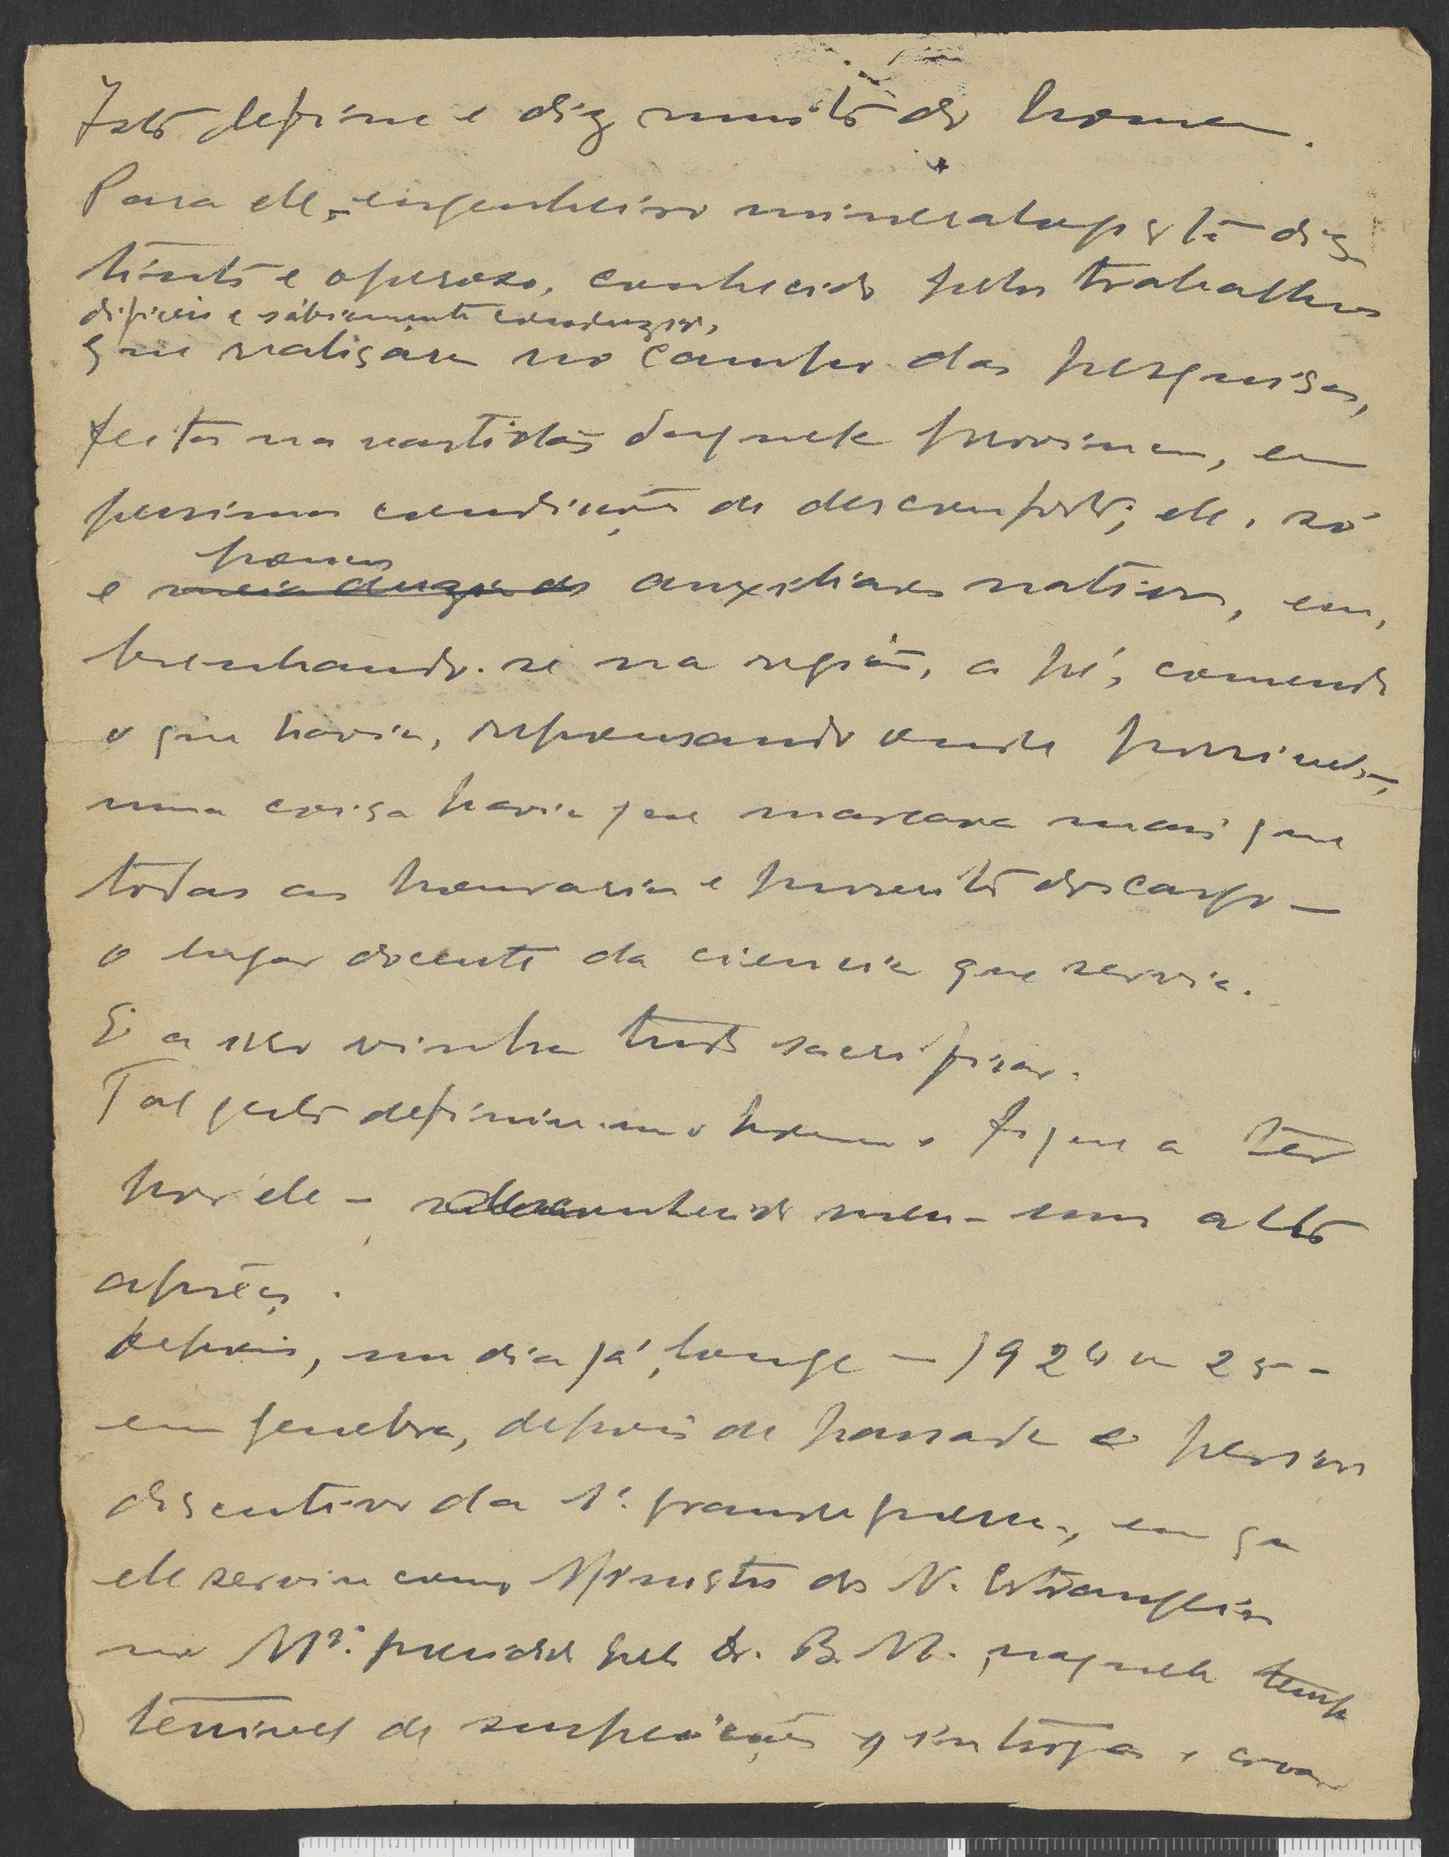 Isto define e diz muito do homem.
Para ele, engenheiro mineralogista dis
tinto e operoso, conhecido pelos trabalhos
dificeis e sàbiamente conduzidos,
que realizára no campo das pesquisas,
feitas na vastidão daquele provincia, em
pessimas condições de desconforto; ele, só
e poucos auxiliares nativos, em,
brenhando-se na região, a pé, comendo
o que havia, repousando onde possivel,
uma coisa havia que marcava mais que
todas as honrarias e proventos dos cargo —
o lugar docente da ciencia que servia.
E a isso vinha tudo sacrificar.
Tal gesto definiu-me o homem e fez que a ter
por ele — desconhecido meu — um alto
apreço.
Depois, um dia já longe — 1924 ou 25 —
em Genebra, depois de passado o periodo
discutivo da 1ª grande guerra, em que
ele serviu como Ministro dos N. Estrangeiros
no Mº. presidido pelo Dr. B. M., naquele tempo
terrivel de suspeições e intrigas e